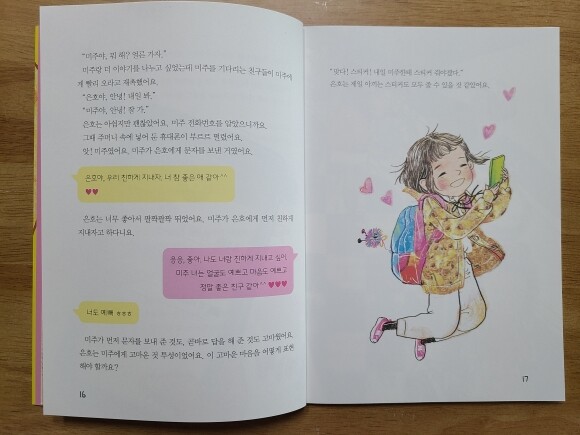 “미주야, 뭐 해? 얼른 가자.”
미주랑 더 이야기를 나누고 싶었는데 미주를 기다리는 친구들이 미주에
게 빨리 오라고 재촉했어요.
“은호야, 안녕! 내일 봐.”
“미주야, 안녕! 잘 가.”
은호는 아쉽지만 괜찮았어요. 미주 전화번호를 알았으니까요.
그때 주머니 속에 넣어 둔 휴대폰이 부르르 떨렸어요.
앗! 미주였어요. 미주가 은호에게 문자를 보낸 거였어요.
은호야, 우리 친하게 지내자. 너 참 좋은 애 같아^^
♥♥
은호는 너무 좋아서 팔짝팔짝 뛰었어요. 미주가 은호에게 먼저 친하게
지내자고 하다니요.
응응, 좋아. 나도 너랑 친하게 지내고 싶어.
미주 너는 얼굴도 예쁘고 마음도 예쁘고
정말 좋은 친구 같아^^♥♥♥
너도 예뻐 ㅎㅎㅎ
미주가 먼저 문자를 보내 준 것도, 곧바로 답을 해 준 것도 고마웠어요.
은호는 미주에게 고마운 것 투성이였어요. 이 고마운 마음을 어떻게 표현
해야 할까요?
16
“맞다! 스티커! 내일 미주한테 스티커 줘야겠다.”
은호는 제일 아끼는 스티커도 모두 줄 수 있을 것 같았어요.
17